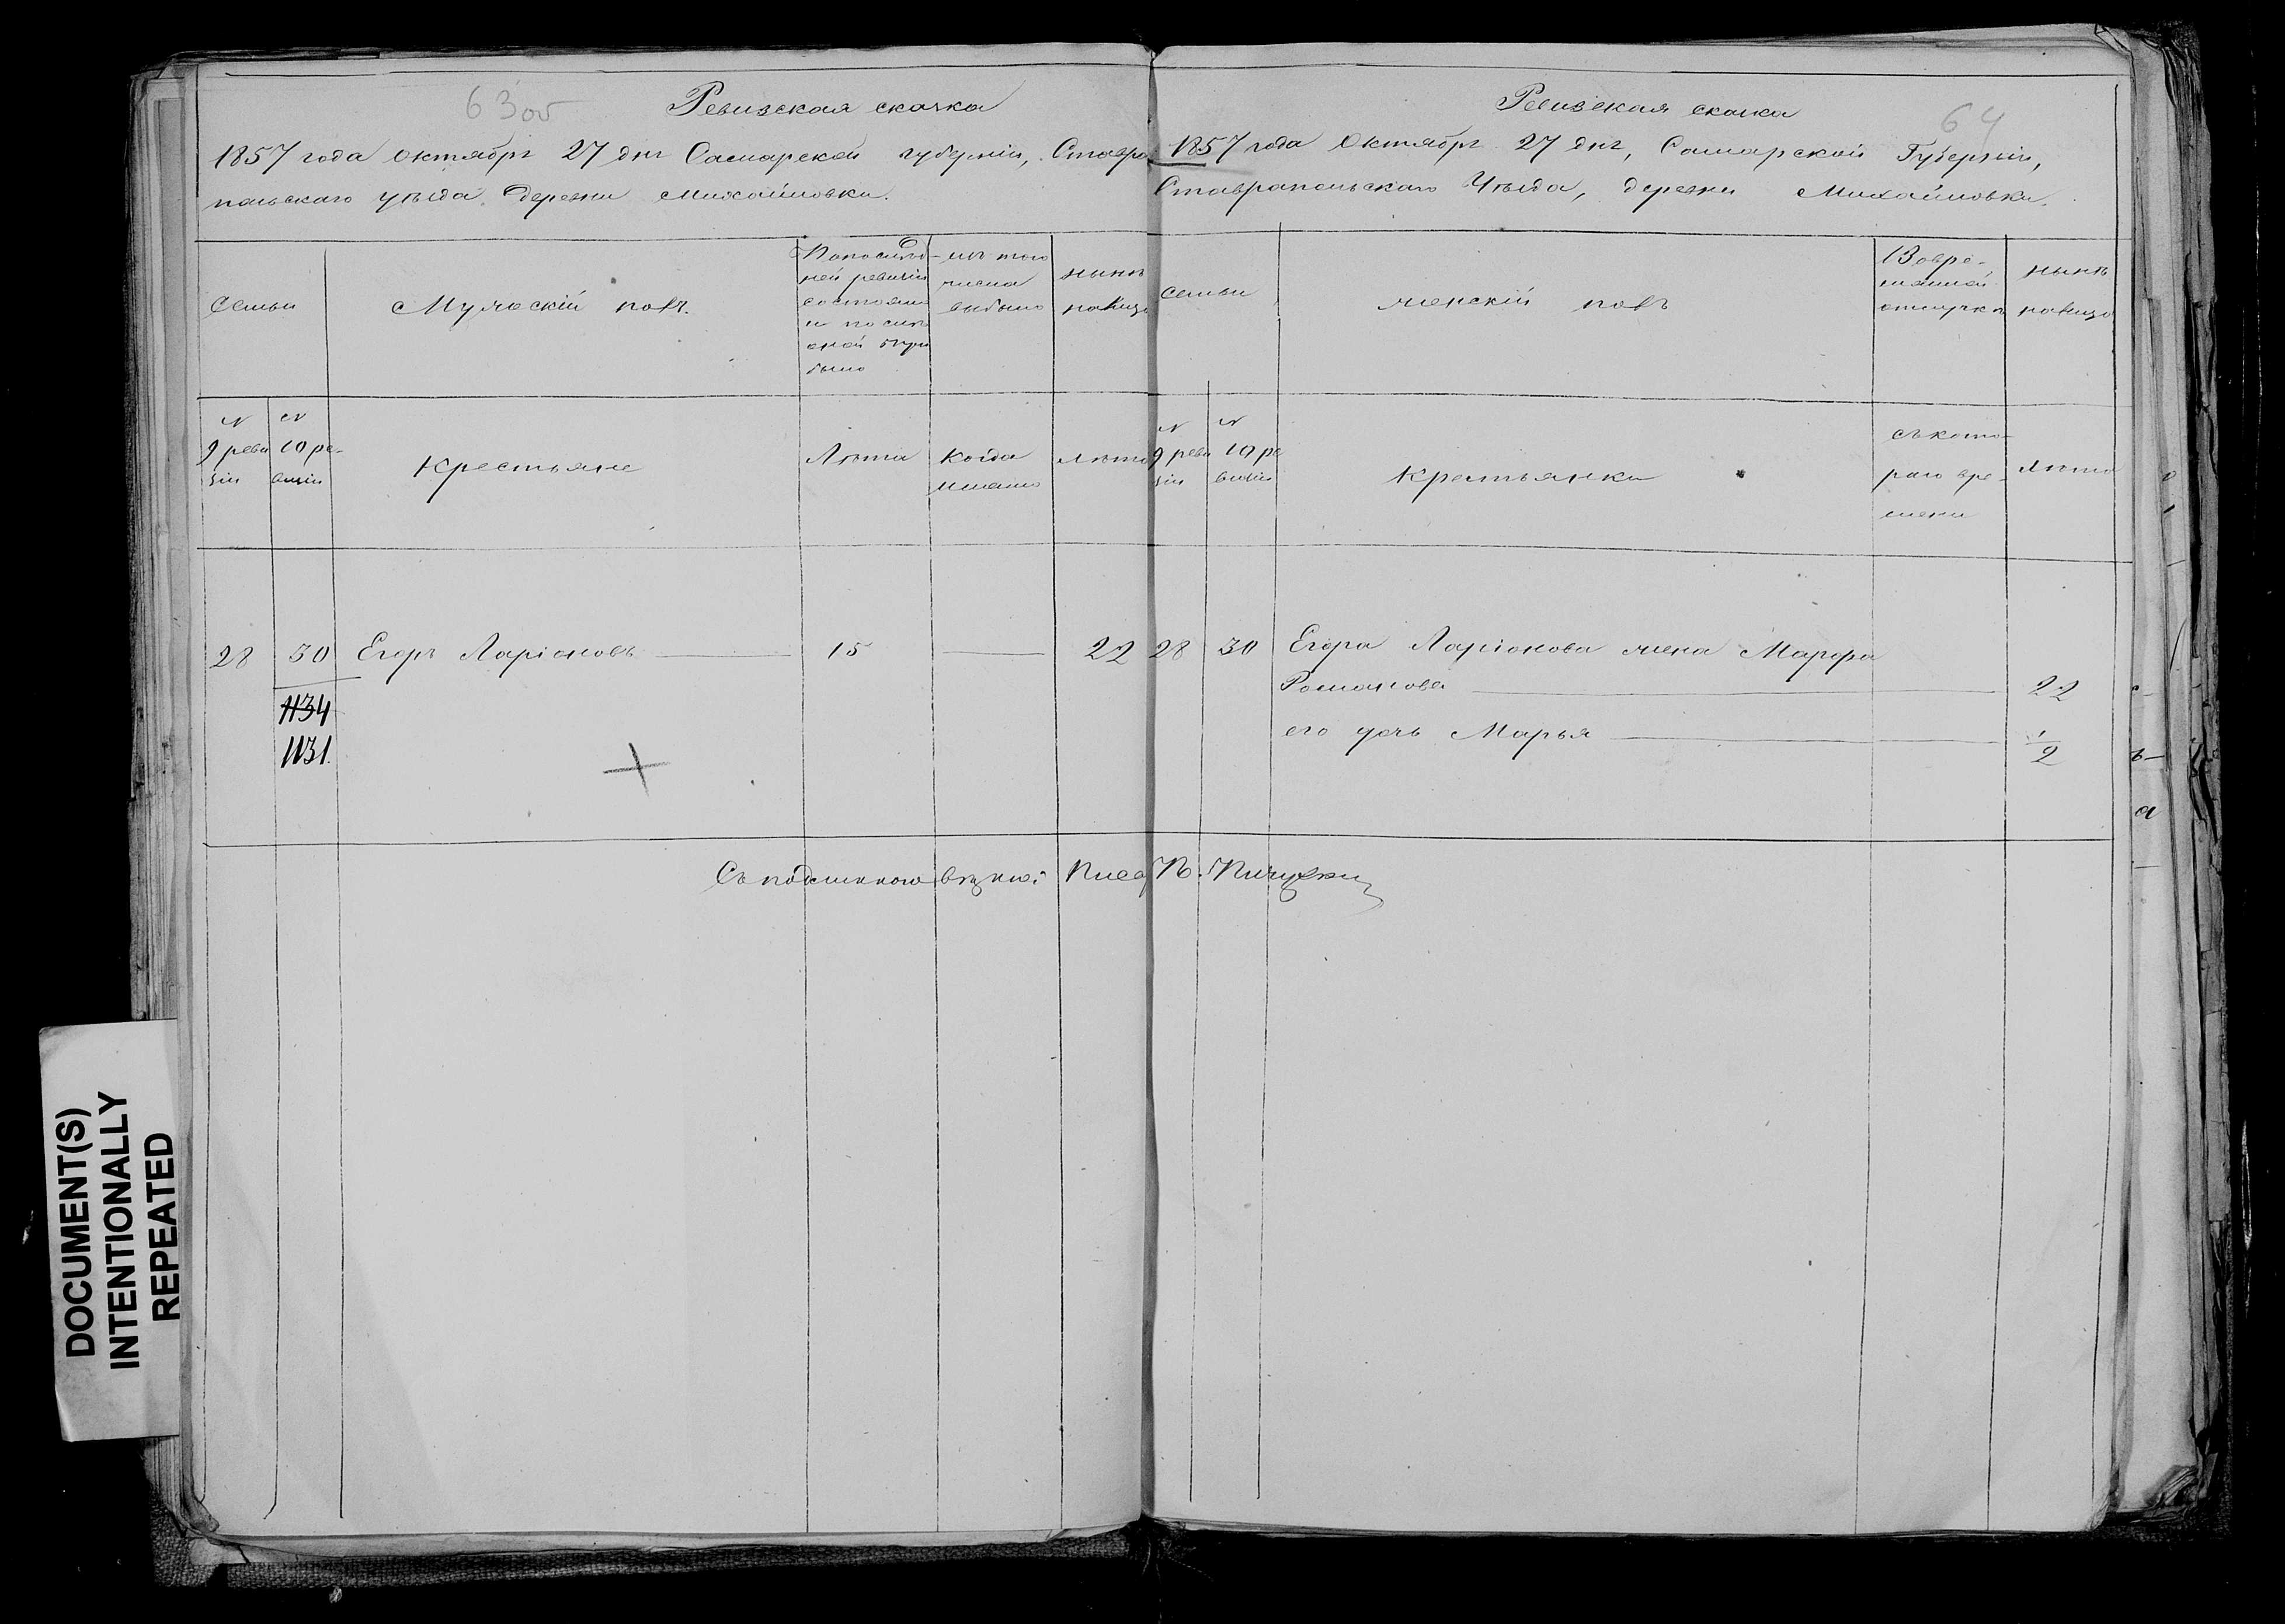 63об
Ревизская сказка
1857 года октября 27 дня Самарской губерніи, Ставро
польскаго уѣзда деревни Михайловки.
Семьи
Мужескій полъ.
По послѣд-
ней ревизіи
состояло
и послѣ
оной при
было
изъ того
числа
выбыло
нынѣ
на лицо
N
9 реви
зіи
N
10 ре-
визіи
Крестьяне
Лѣта
Когда
именно
лѣта
28 30 Егоръ Ларіоновъ 15 22
1134
1131.
Съ подлиннымъ вѣрно:
64
Ревизская сказка
1857 года Октября 27 дня, Самарской Губерніи,
Ставропольскаго Уѣзда, деревни Михайловки.
Семьи
женскій полъ
Во вре-
менной
отлучкѣ
нынѣ
на лицо
N
9 реви
зіи
N
10 ре
визіи
Крестьянки
съ кото-
раго вре-
мени
лѣта
28 30 Егора Ларіонова жена Марфа
Романова 22
его дочь Марья 1/2
DOCUMENT(S)
INTENTIONALLY
REPEATED